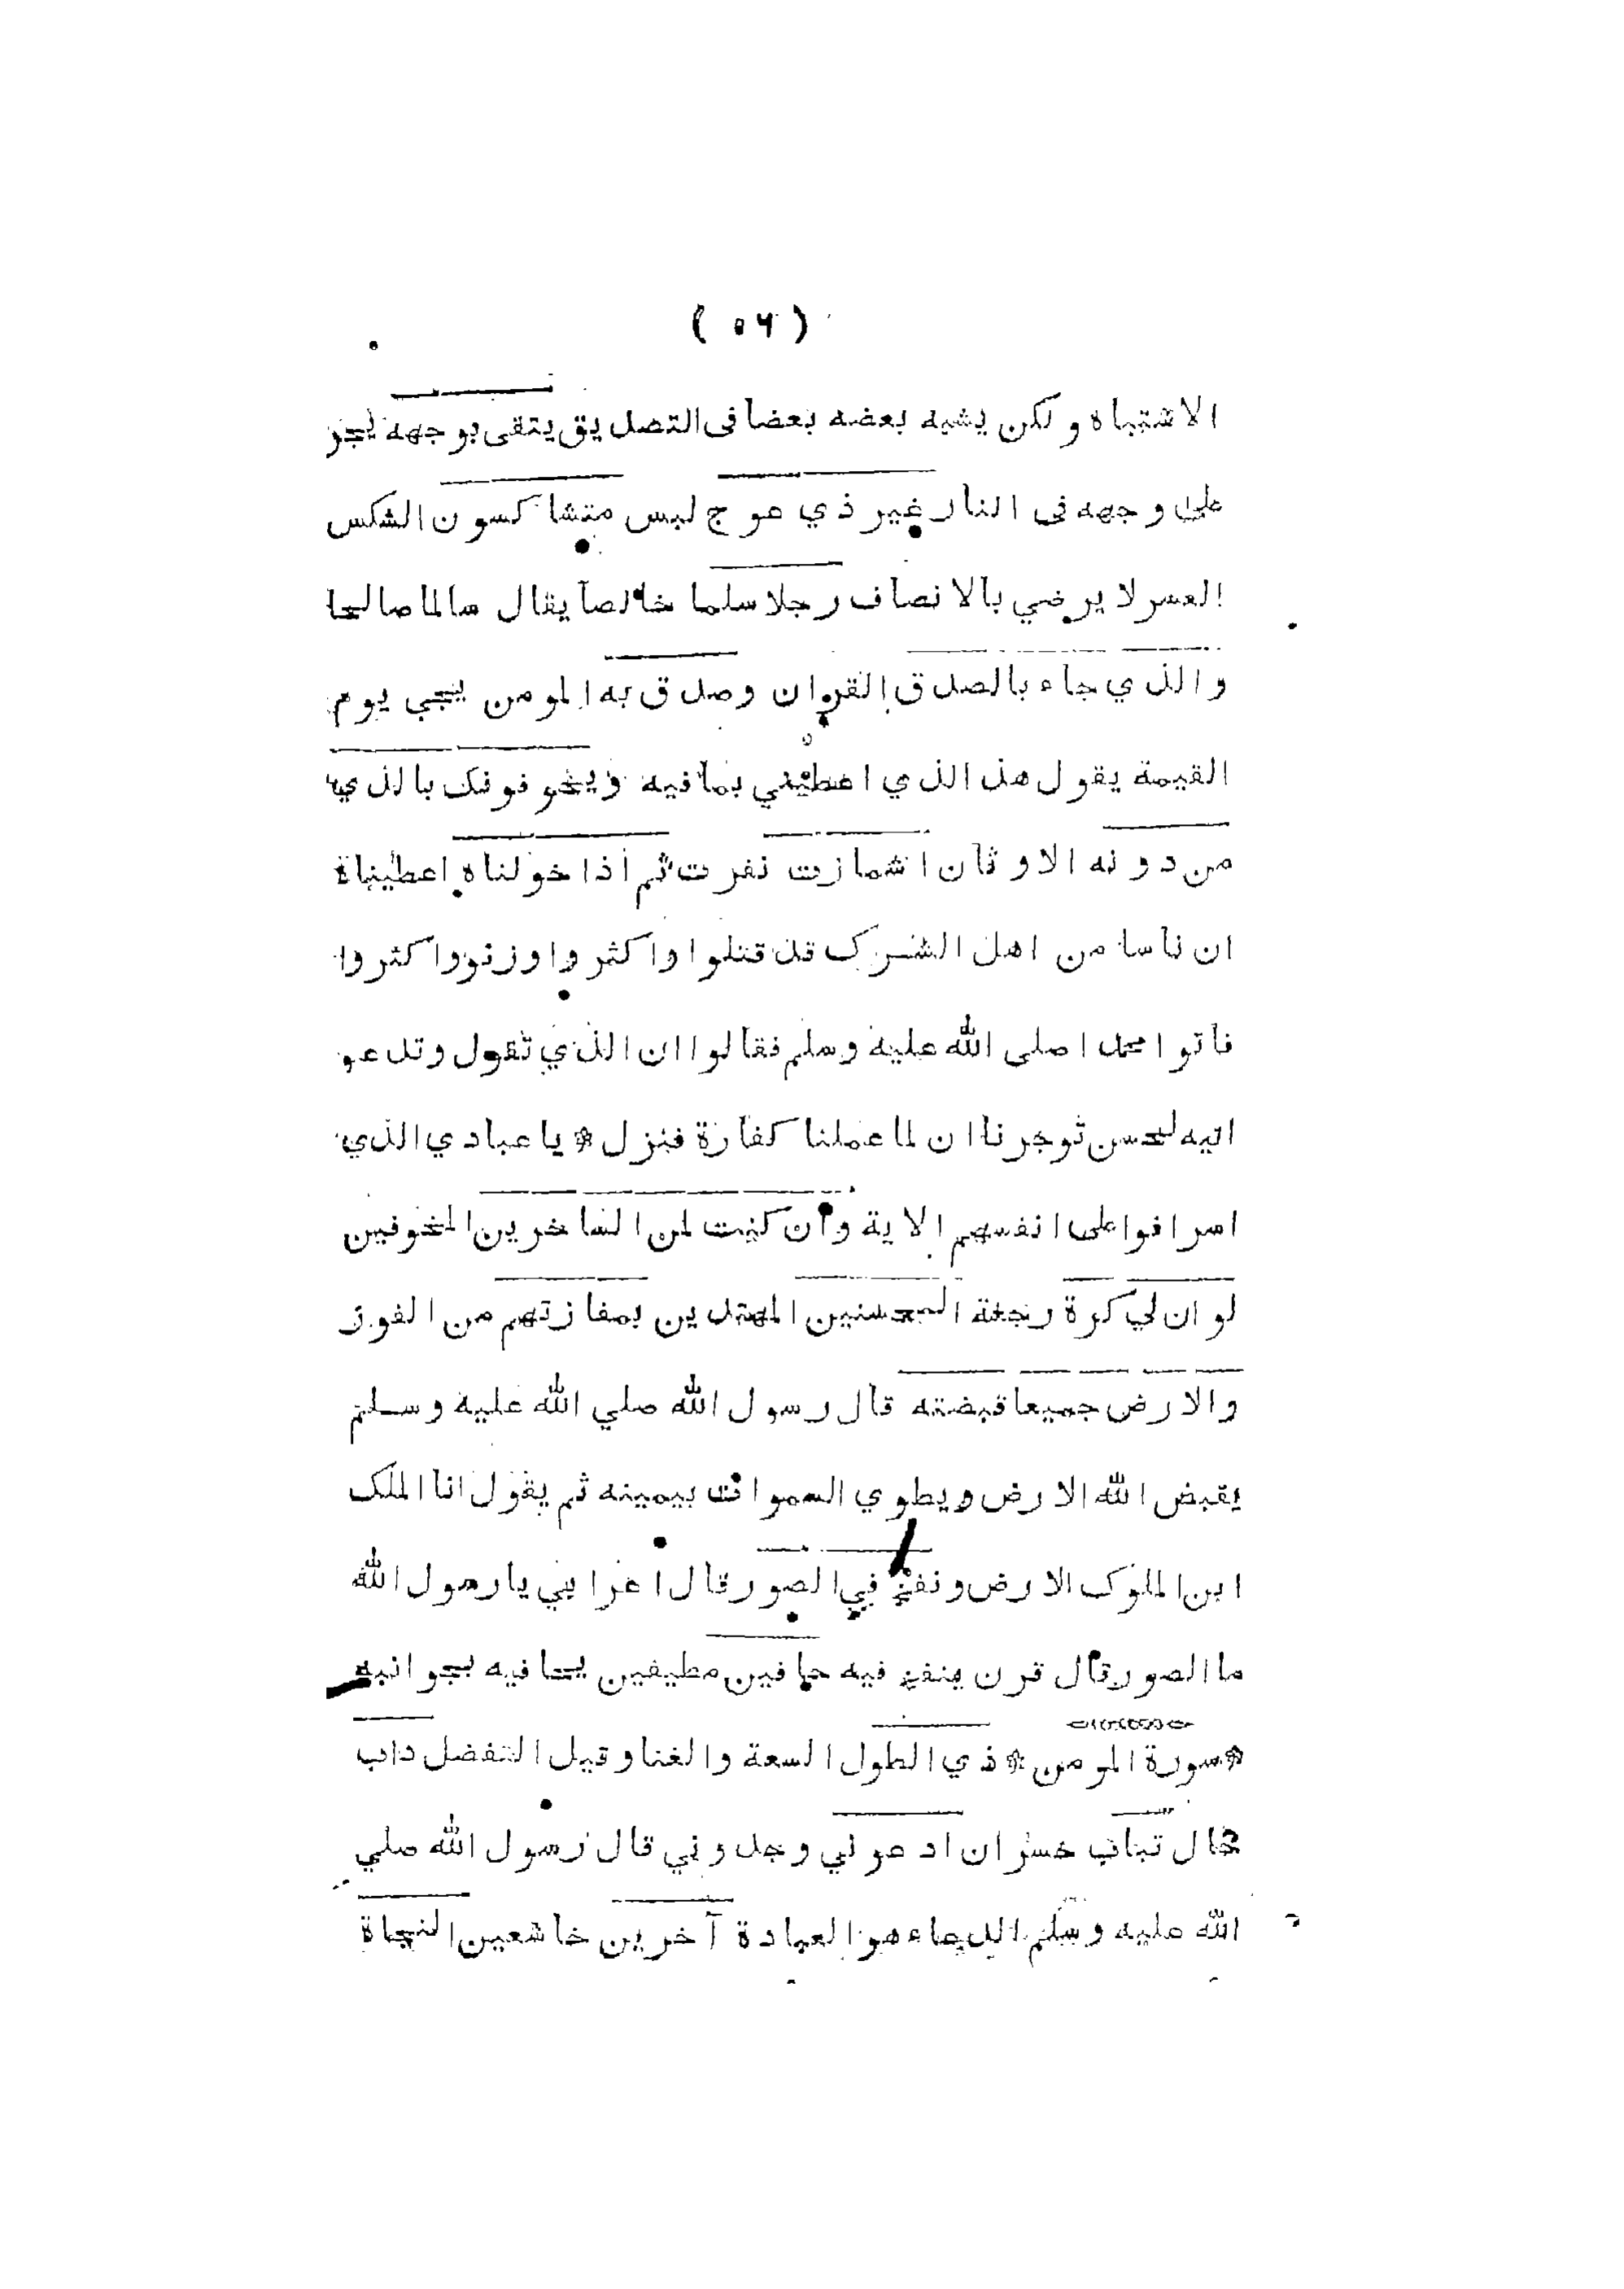 ( ٥٦ )
الاشتباه ولكن يشبه بعضه بعضا فى التصديق يتقى بوجهه يجر
على وجهه فى النار غير ذي عوج لبس متشاكسون الشكس
العسر لا يرضي بالانصاف رجلا سلما خالصا يقال سالما صالحا
والذي جاء بالصدق القران وصدق به المومن يجي يوم
القيمة يقول هذا الذي اعطيتني بما فيه ويخوفونك بالذي
من دونه الاوثان اشمازت نفرت ثم اذا خولناه اعطيناة
ان ناسا من اهل الشرك قد قتلوا واكثروا وزنوا واكثروا
فاتوا محمدا صلى الله عليه وسلم فقالوا ان الذي تقول وتدعو
اليه لحسن توجرنا ان لما عملنا كفارة فنزل * يا عبادي الذي
اسرافوا على انفسهم الاية وان كنت لمن الساخرين المخوفين
لو ان لي كرة رجعة المحسنين المهتدين بمفازتهم من الفوز
والارض جميعا قبضته قال رسول الله صلي الله عليه وسلم
يقبض الله الارض ويطوي السموات بيمينه ثم يقول انا الملك
ابن الملوك الارض ونفخ في الصور قال اعرابي يا رسول الله
ما الصور قال قرن ينفخ فيه حافين مطيفين بحافيه بجوانبه
* سورة المومن * ذي الطول السعة والغنا وقيل التفضل داب
حال تباب خسران ادعوني وحدوني قال رسول الله صلي
الله عليه وسلم الدعاء هو العبادة آخرين خاشعين النجاة